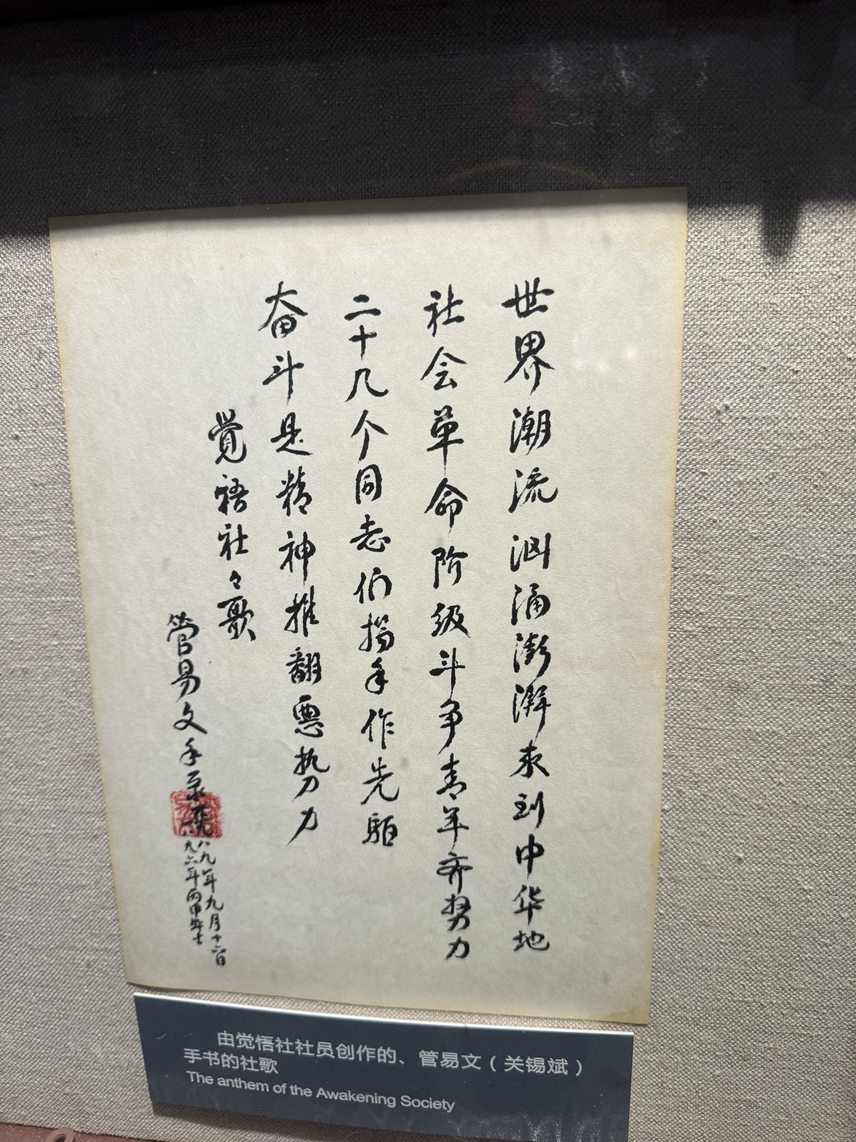 世界潮流汹涌澎湃来到中华地
社会革命阶级斗争青年齐努力
二十几个同志们携手作先驱
奋斗是精神推翻恶势力
覺悟社々歌
管易文手录
八九年九月十六日
由觉悟社社员创作的、管易文（关锡斌）
手书的社歌
The anthem of the Awakening Society